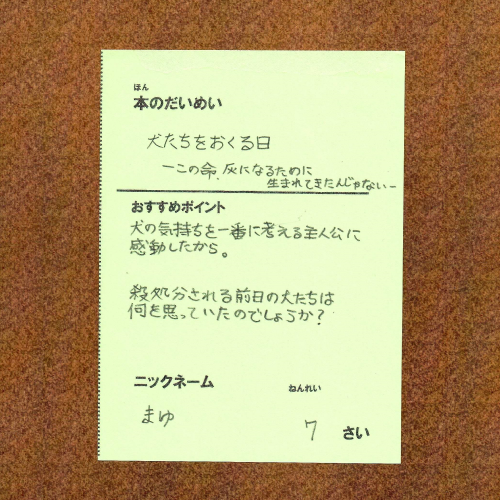 ほん
本のだいめい
犬たちをおくる日
ーこの命、灰になるために
生まれてきたんじゃないー
おすすめポイント
犬の気持ちを一番に考える主人公に
感動したから。
殺処分される前日の犬たちは
何を思っていたのでしょうか?
ニックネーム
ねんれい
まゆ
7 さい